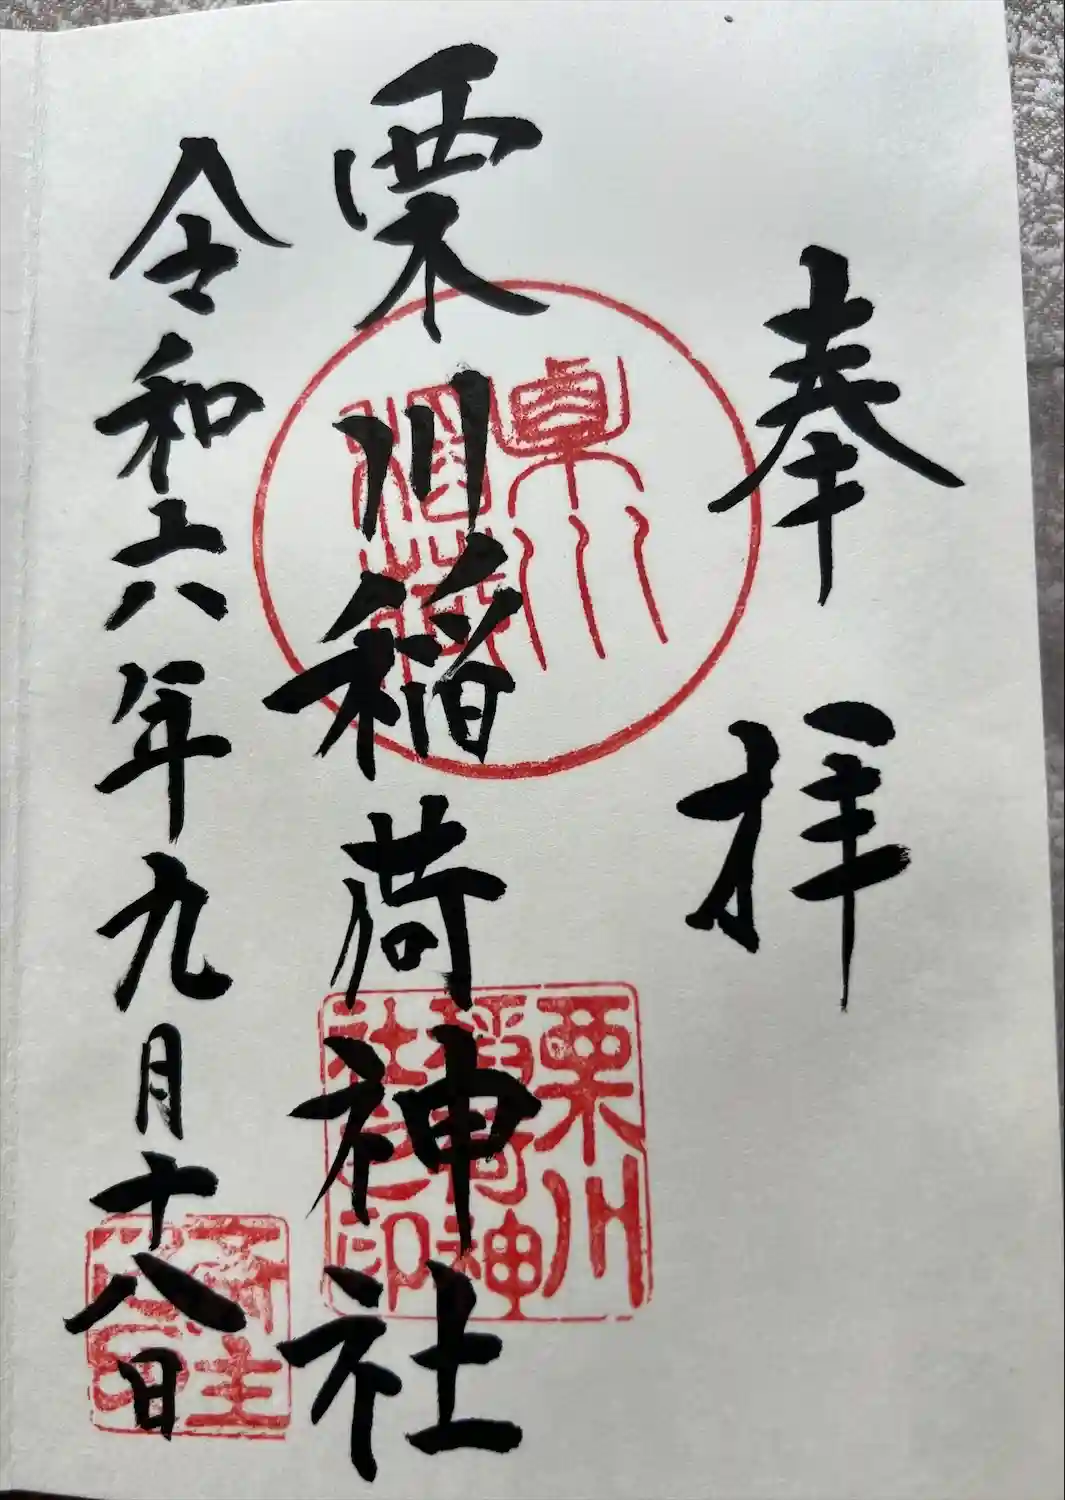 奉拝
栗川稲荷神社
令和六年九月十八日
栗川
稲荷
栗川
稲荷神
社之印